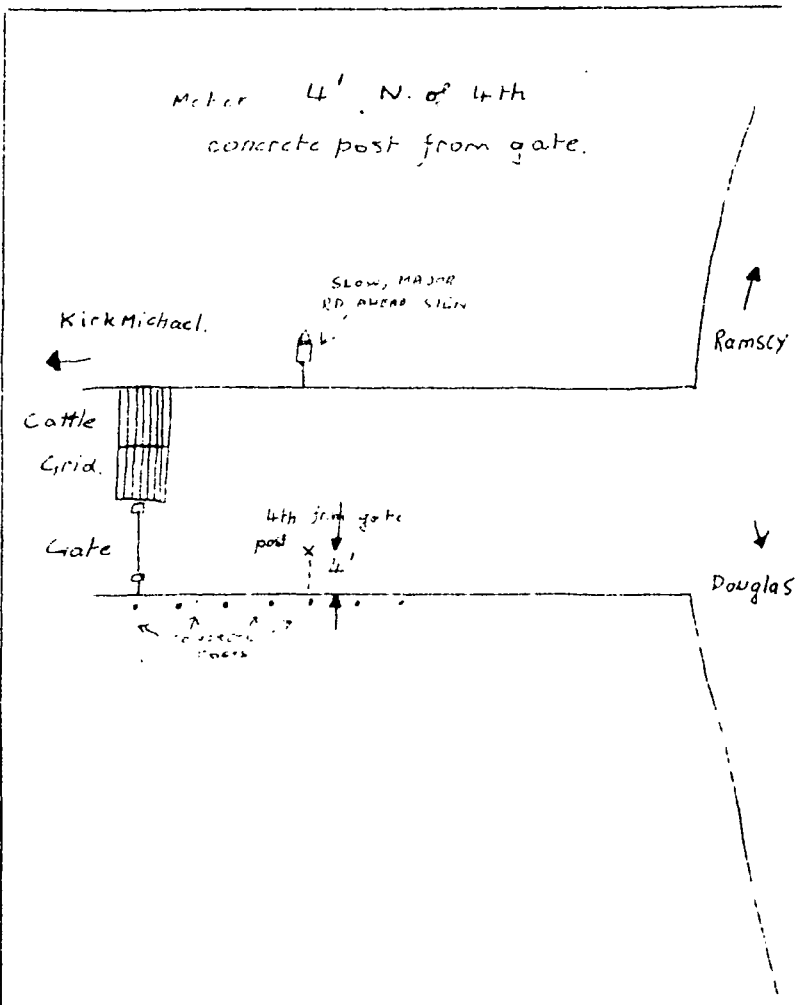 Meter 4' N. of 4th
concrete post from gate.
SLOW, MAJOR
RD AHEAD SIGN
KirkMichael.
Ramsey
Cattle
Grid.
4th from gate
post x
4'
Gate
Douglas
concrete
posts